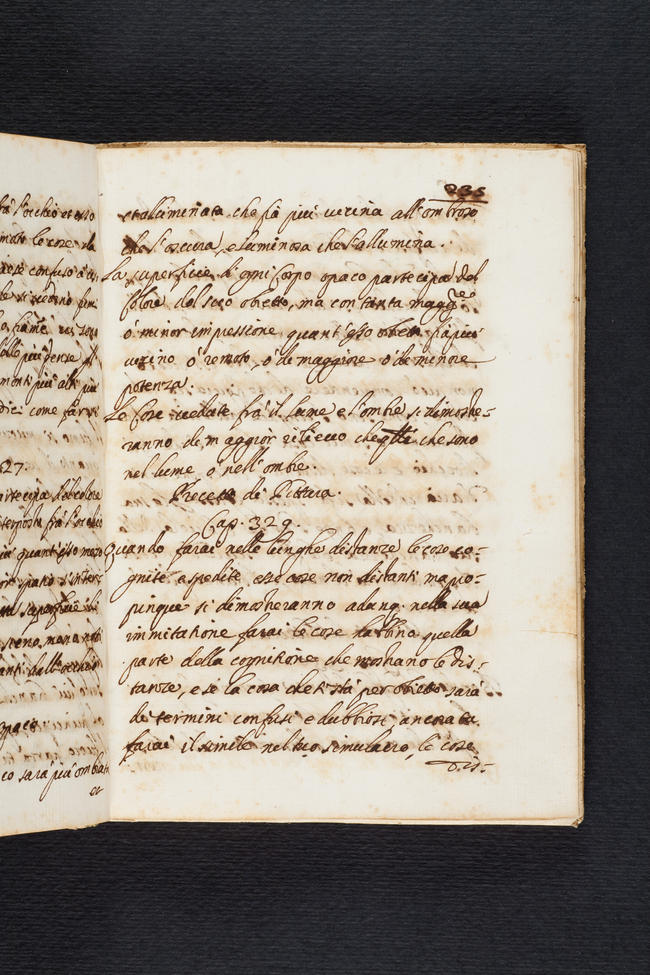 235
et aluminata che sia più vicina all'ombroso
che l'oscura, e luminosa che l'allumina.
La superficie d'ogni Corpo opaco partecipa del
Colore del suo obietto, ma con tanta magg.re
o minor impressione quant'esso obietto sia più
vicino o remoto, o di maggiore o di minore
potenza.
Le Cose vedute frà il lume e l'ombre si dimostre-
ranno di maggior rilievo che quelle che sono
nel lume o nell'ombre.
Precetto di Pittura.
Cap. 329.
Quando farai nelle lunghe distanze le cose co-
gnite, e spedite, esse cose non distanti ma pro-
pinque si dimostreranno adunq. nella tua
immitatione farai le cose habbino quella
parte della cognitione che mostrano le dis-
tanze, e se la cosa che ti stà per obietto sarà
dei termini confusi e dubbiosi ancora tu
farai il simile nel tuo simulacro, le cose
dis-
frà l'occhio et esso
le cose
confuso
Lume
monti più alti
dici come
327.
partecipa del colore
interposto frà l'occhio
quant'esso
superficie
dall'occhio
opaco
co sarà più ombra
et